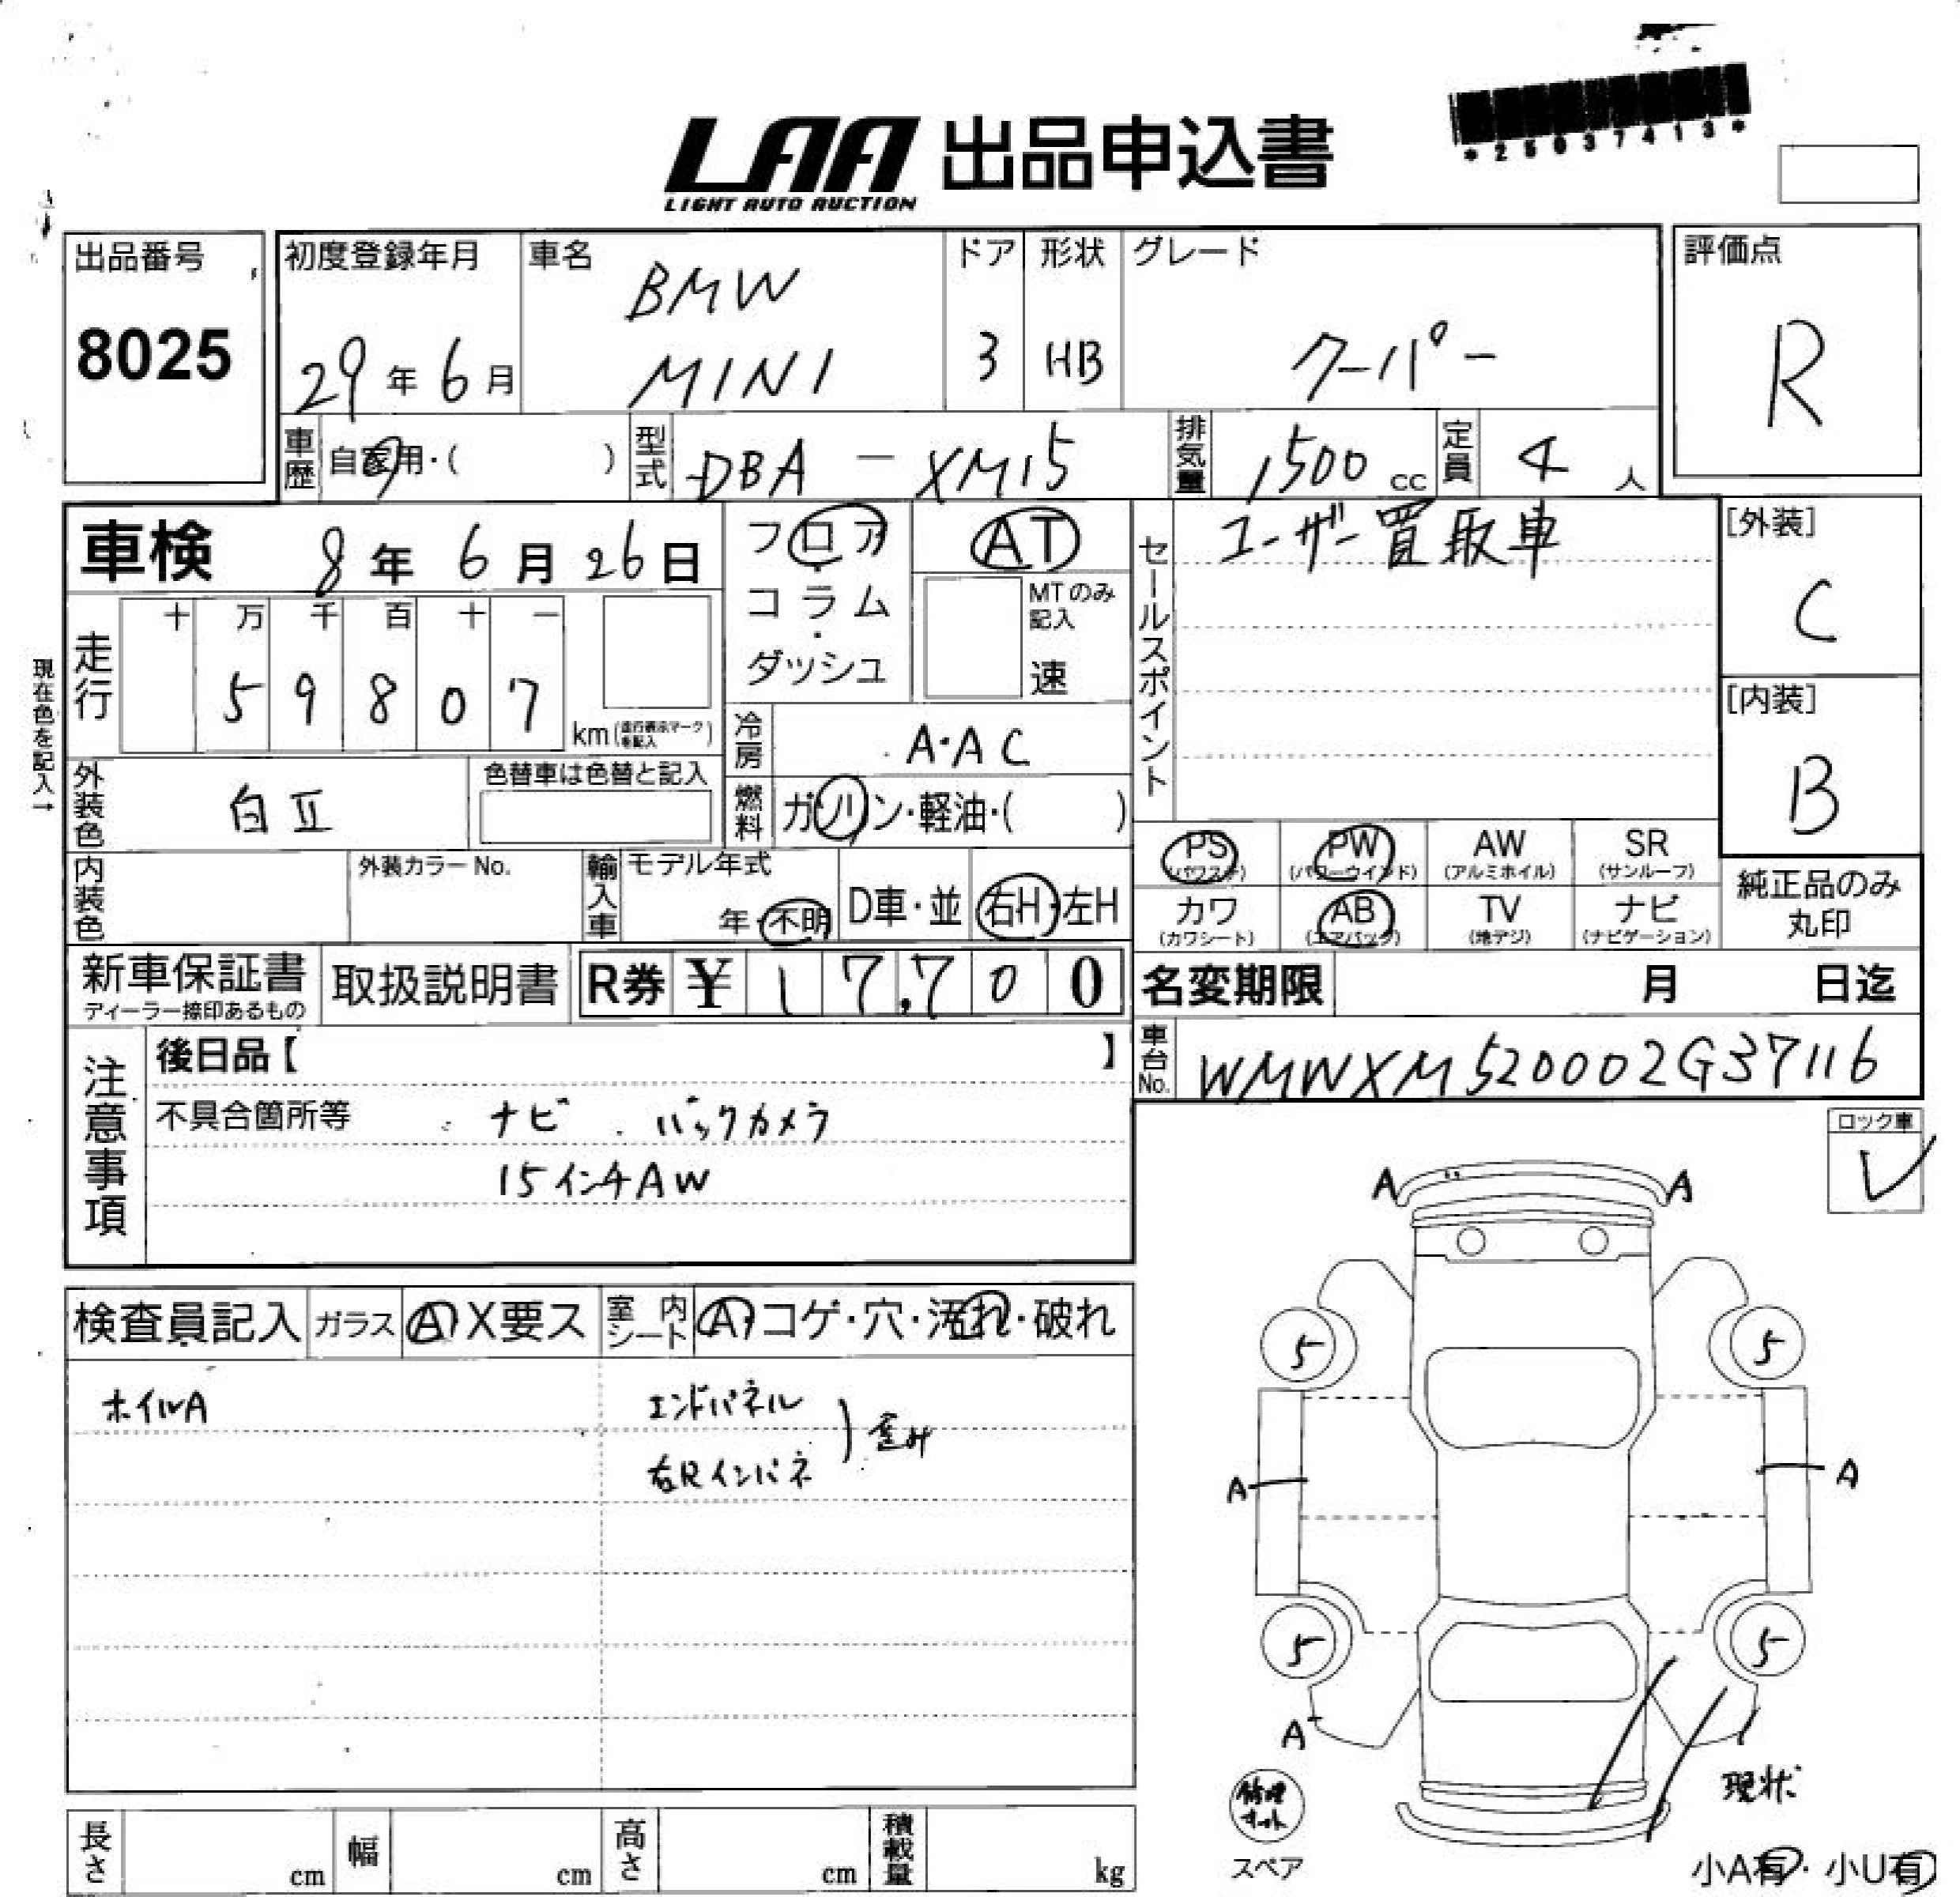 *25037413*
LAA 出品申込書
LIGHT AUTO AUCTION
出品番号
8025
初度登録年月
29年6月
車名
BMW
MINI
ドア
3
形状
HB
グレード
クーパー
評価点
R
車歴 自家用・( )
型式 DBA-XM15
排気量 1500cc
定員 4人
車検 8年6月26日
フロア・コラム・ダッシュ
AT
MTのみ記入
速
セールスポイント
ユーザー買取車
[外装]
C
[内装]
B
現在色を記入→
走行
十 万 千 百 十 一
5 9 8 0 7
km(走行表示マークを記入)
冷房 A・AC
外装色 白II
色替車は色替と記入
燃料 ガソリン・軽油・( )
PS (パワステ)
PW (パワーウインド)
AW (アルミホイル)
SR (サンルーフ)
カワ (カワシート)
AB (エアバック)
TV (地デジ)
ナビ (ナビゲーション)
純正品のみ丸印
内装色
外装カラーNo.
輸入車
モデル年式
年・不明
D車・並
右H・左H
新車保証書
ディーラー捺印あるもの
取扱説明書
R券 ¥17,700
名変期限 月 日迄
車台No. WMWXM520002G37116
注意事項
後日品【 】
不具合箇所等 ナビ . バックカメラ
15インチAW
ロック車
検査員記入
ガラス A X要ス
室内シート A・コゲ・穴・汚れ・破れ
ホイルA
エンドパネル
右Rインパネ
歪み
A A
5 5
A A
5 5
A
現状
修理キット
スペア
小A有・小U有
長さ cm
幅 cm
高さ cm
積載量 kg